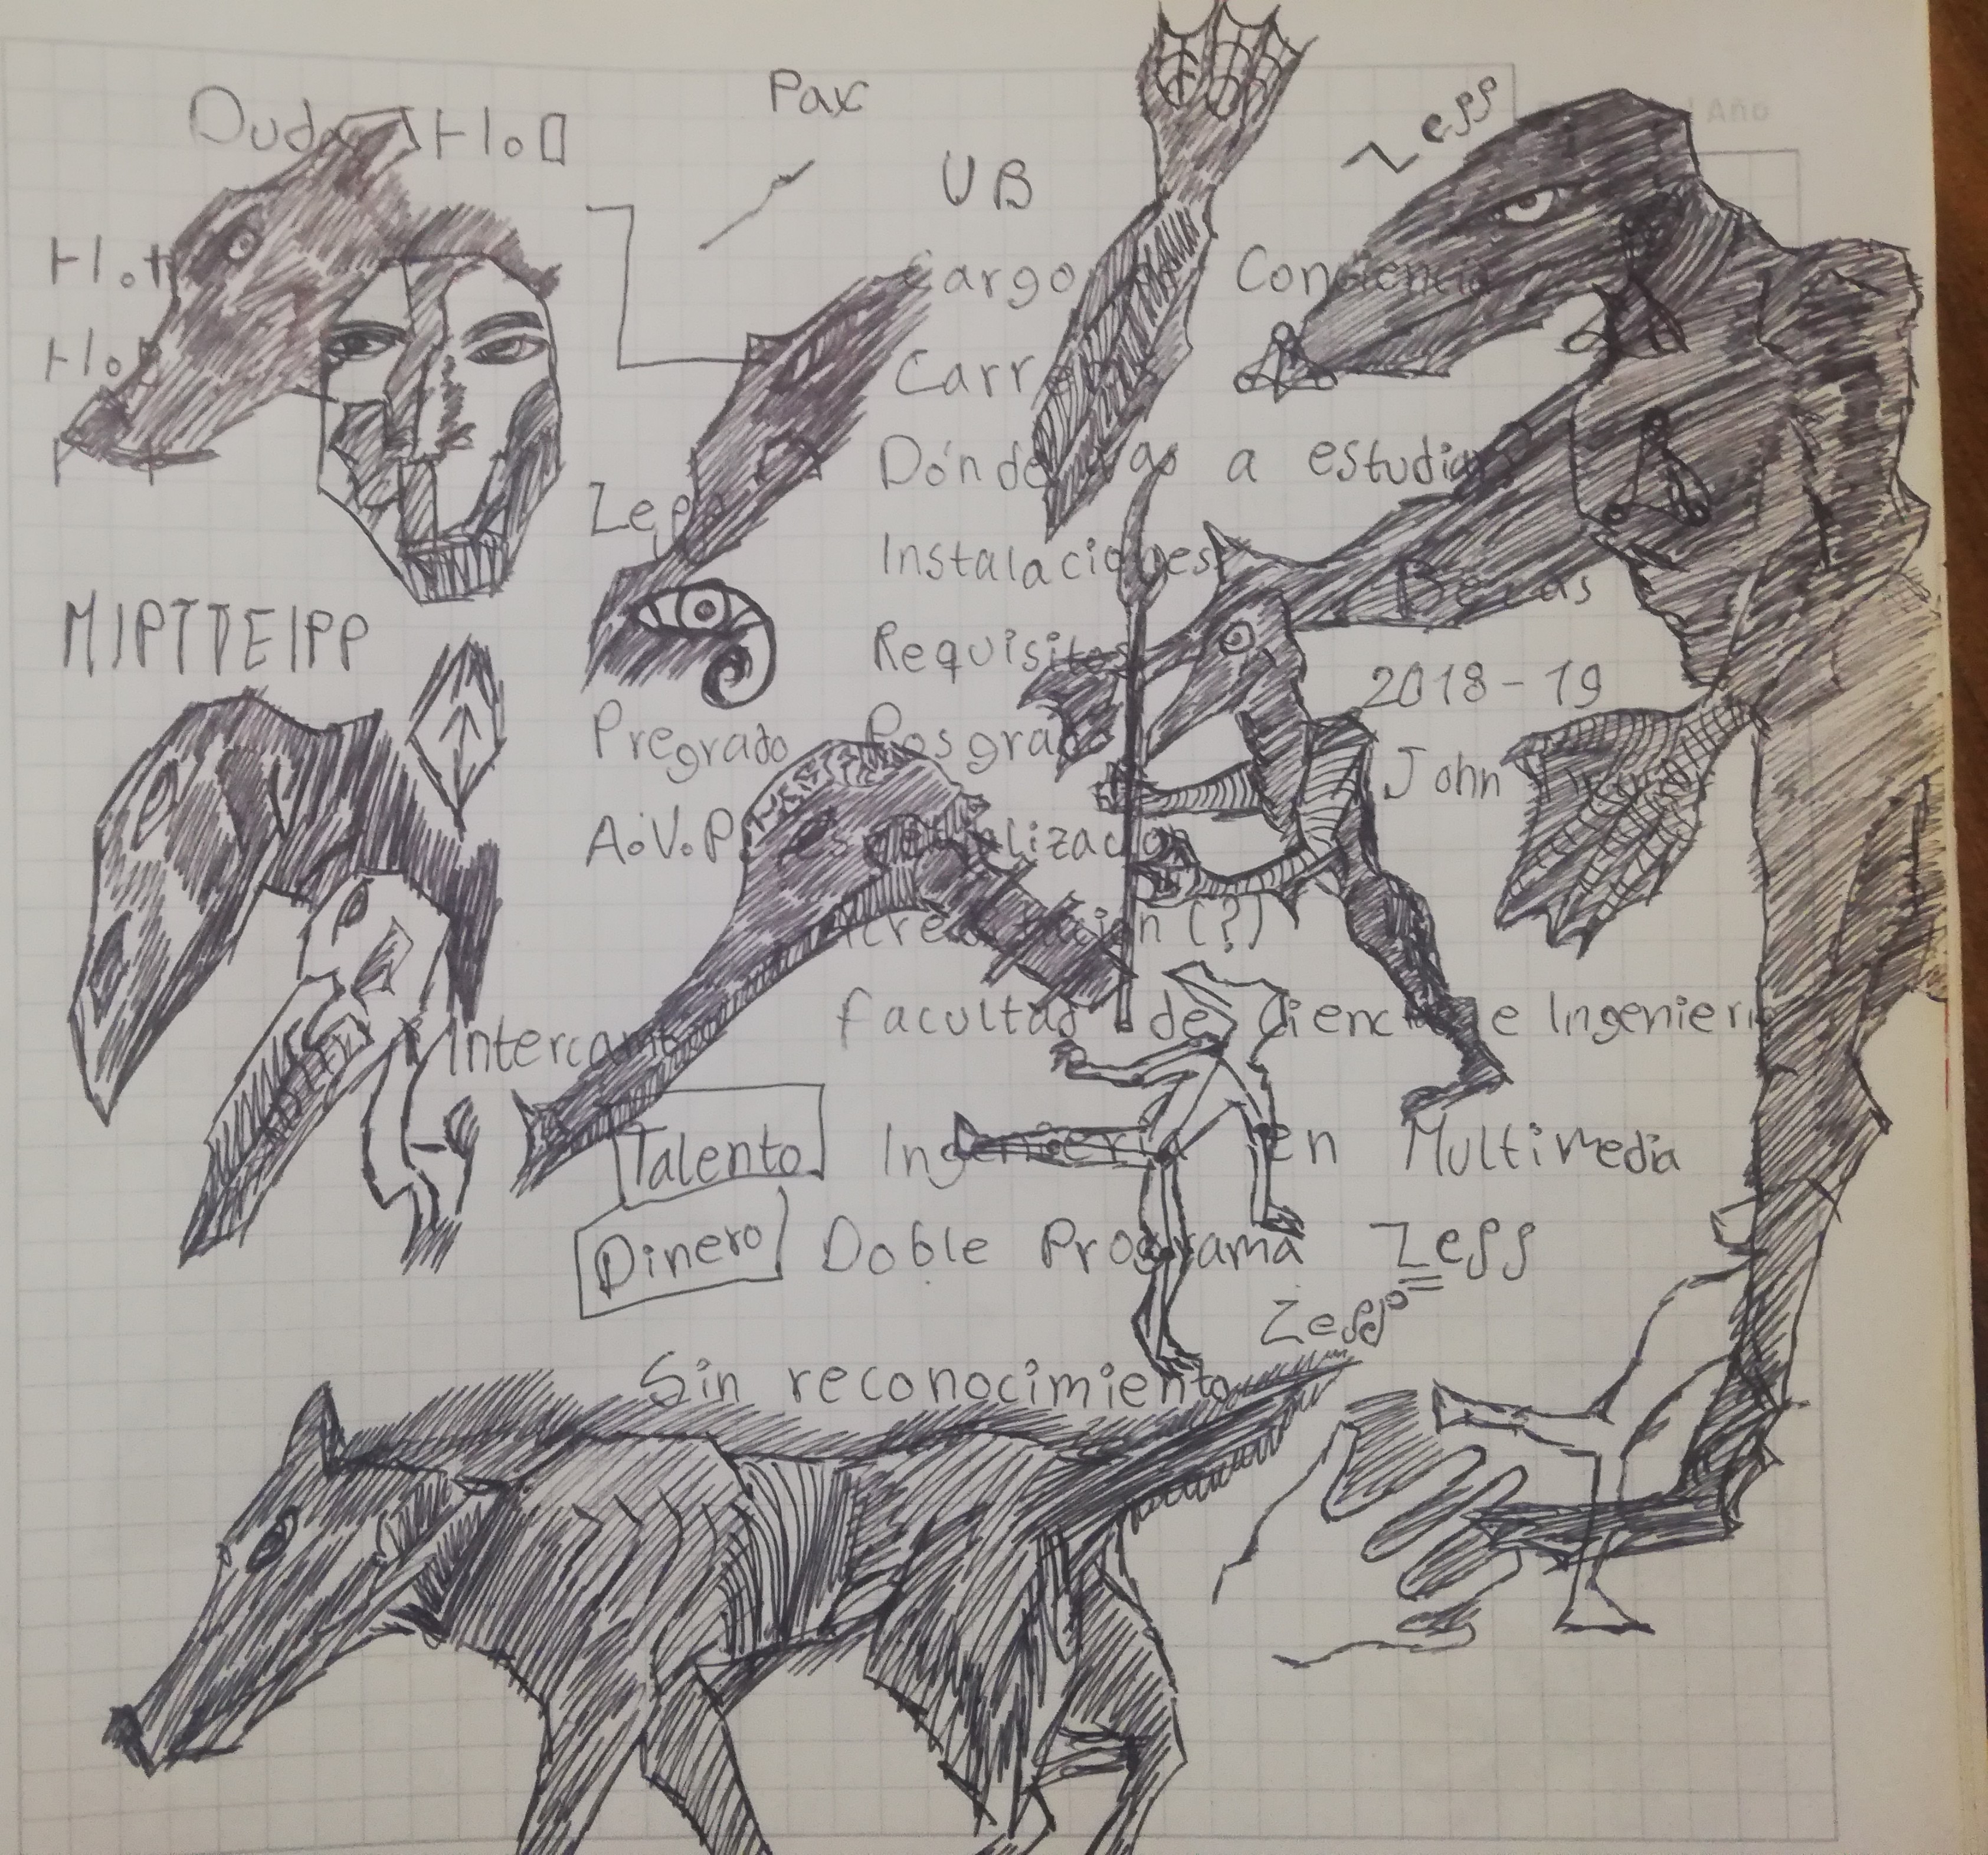 Pax
Duda H.o
UB
Zess
Año
H.o
Cargo Conciencia
H.o
Carrera
Dónde vas a estudiar
Zepp
Instalaciones
Becas
MIPTTEIPP
Requisitos
2018-19
Pregrado Posgrado
John
A.V.P.
Acreditación (?)
Intercamb
facultad de Ciencias e Ingenierí
Talento Ingeniería en Multimedia
Dinero Doble Programa Zess
Zess
Sin reconocimiento